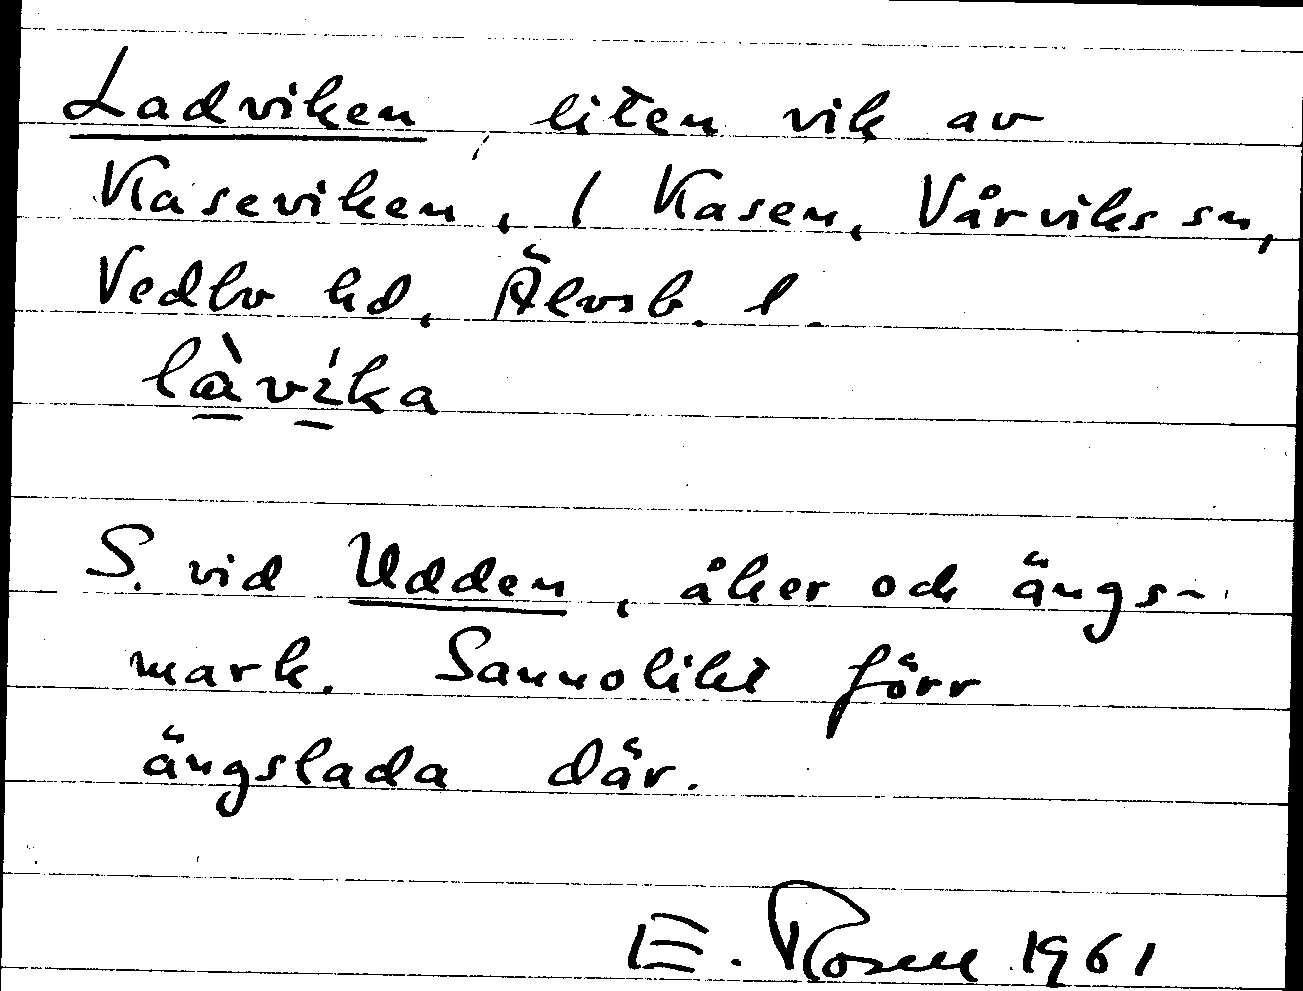 Ladviken, liten vik av
Kaseviken, 1 Kasen, Vårviks sn,
Vedbo hd, Älvsb. l.
là̱ví̱ka
S. vid Udden, åker och ängs-
mark. Sannolikt förr
ängslada där.
E. Rosell 1961